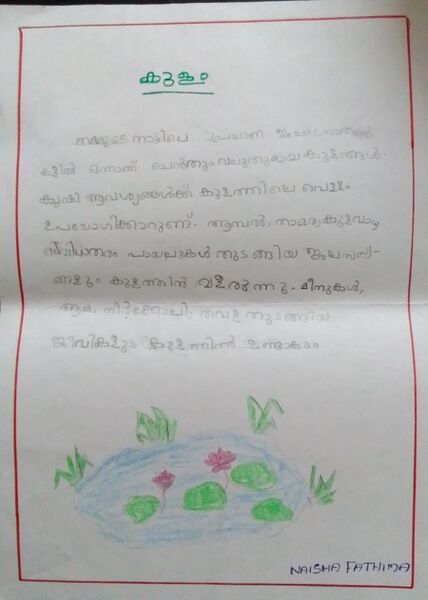 കുളം
നമ്മുടെ നാട്ടിലെ പ്രധാന ജലസ്രോതസ്സു-
കളിൽ ഒന്നാണ് ചെറുതും വലുതുമായ കുളങ്ങൾ.
കൃഷി ആവശ്യങ്ങൾക്ക് കുളത്തിലെ വെള്ളം
ഉപയോഗിക്കാറുണ്ട്. ആമ്പൽ, താമര, കുളവാഴ
വിവിധതരം പായലുകൾ തുടങ്ങിയ ജലസസ്യ-
ങ്ങളും കുളത്തിൽ വളരുന്നു. മീനുകൾ,
ആമ, നീർക്കോലി, തവള തുടങ്ങിയ
ജീവികളും കുളത്തിൽ ഉണ്ടാകും
NAISHA FATHIMA